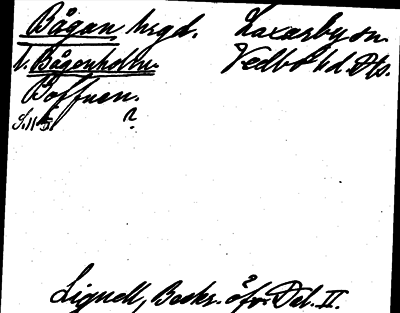 Bågan hrgd. Laxarby sn.
l. Bågenholm. Vedbo hd. Dls.
Boffuen.
S. 115. ?
Lignell, Beskr. öfv. Dal. II.